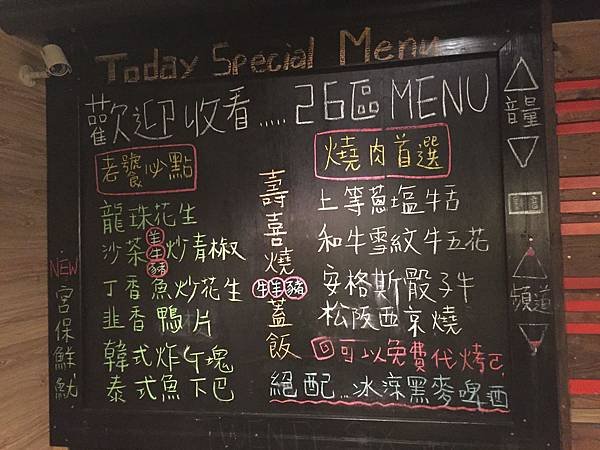 Today Special Menu
歡迎收看.....26區MENU
老饕必點
龍珠花生
沙茶羊牛豬炒青椒
丁香魚炒花生
韭香鴨片
韓式炸午塊
泰式魚下巴
NEW
宮保鮮魷
壽喜燒牛羊豬蓋飯
燒肉首選
上等蔥塩牛舌
和牛雪紋牛五花
安格斯骰子牛
松阪西京燒
可以免費代烤
絕配...冰涼黑麥啤酒
音量
頻道